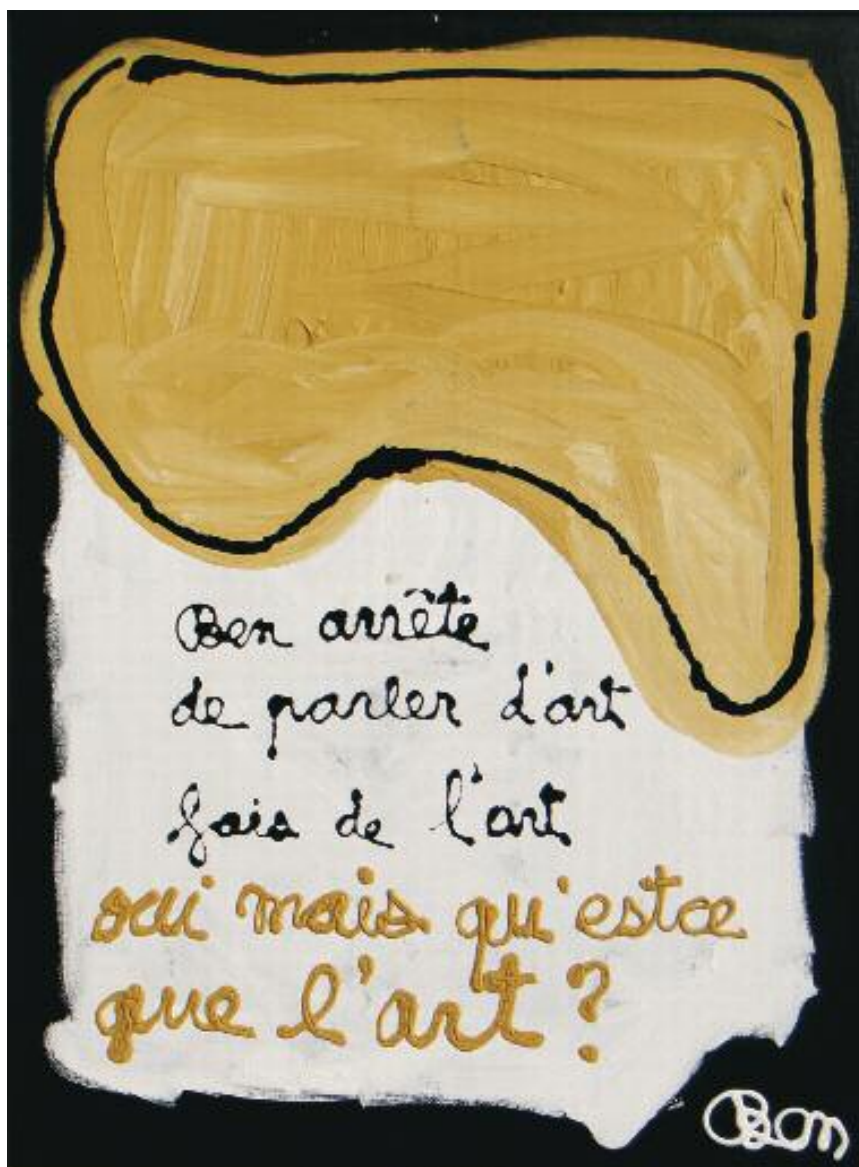 Ben arrête
de parler d'art
fais de l'art
oui mais qu'estce
que l'art ?
Ben